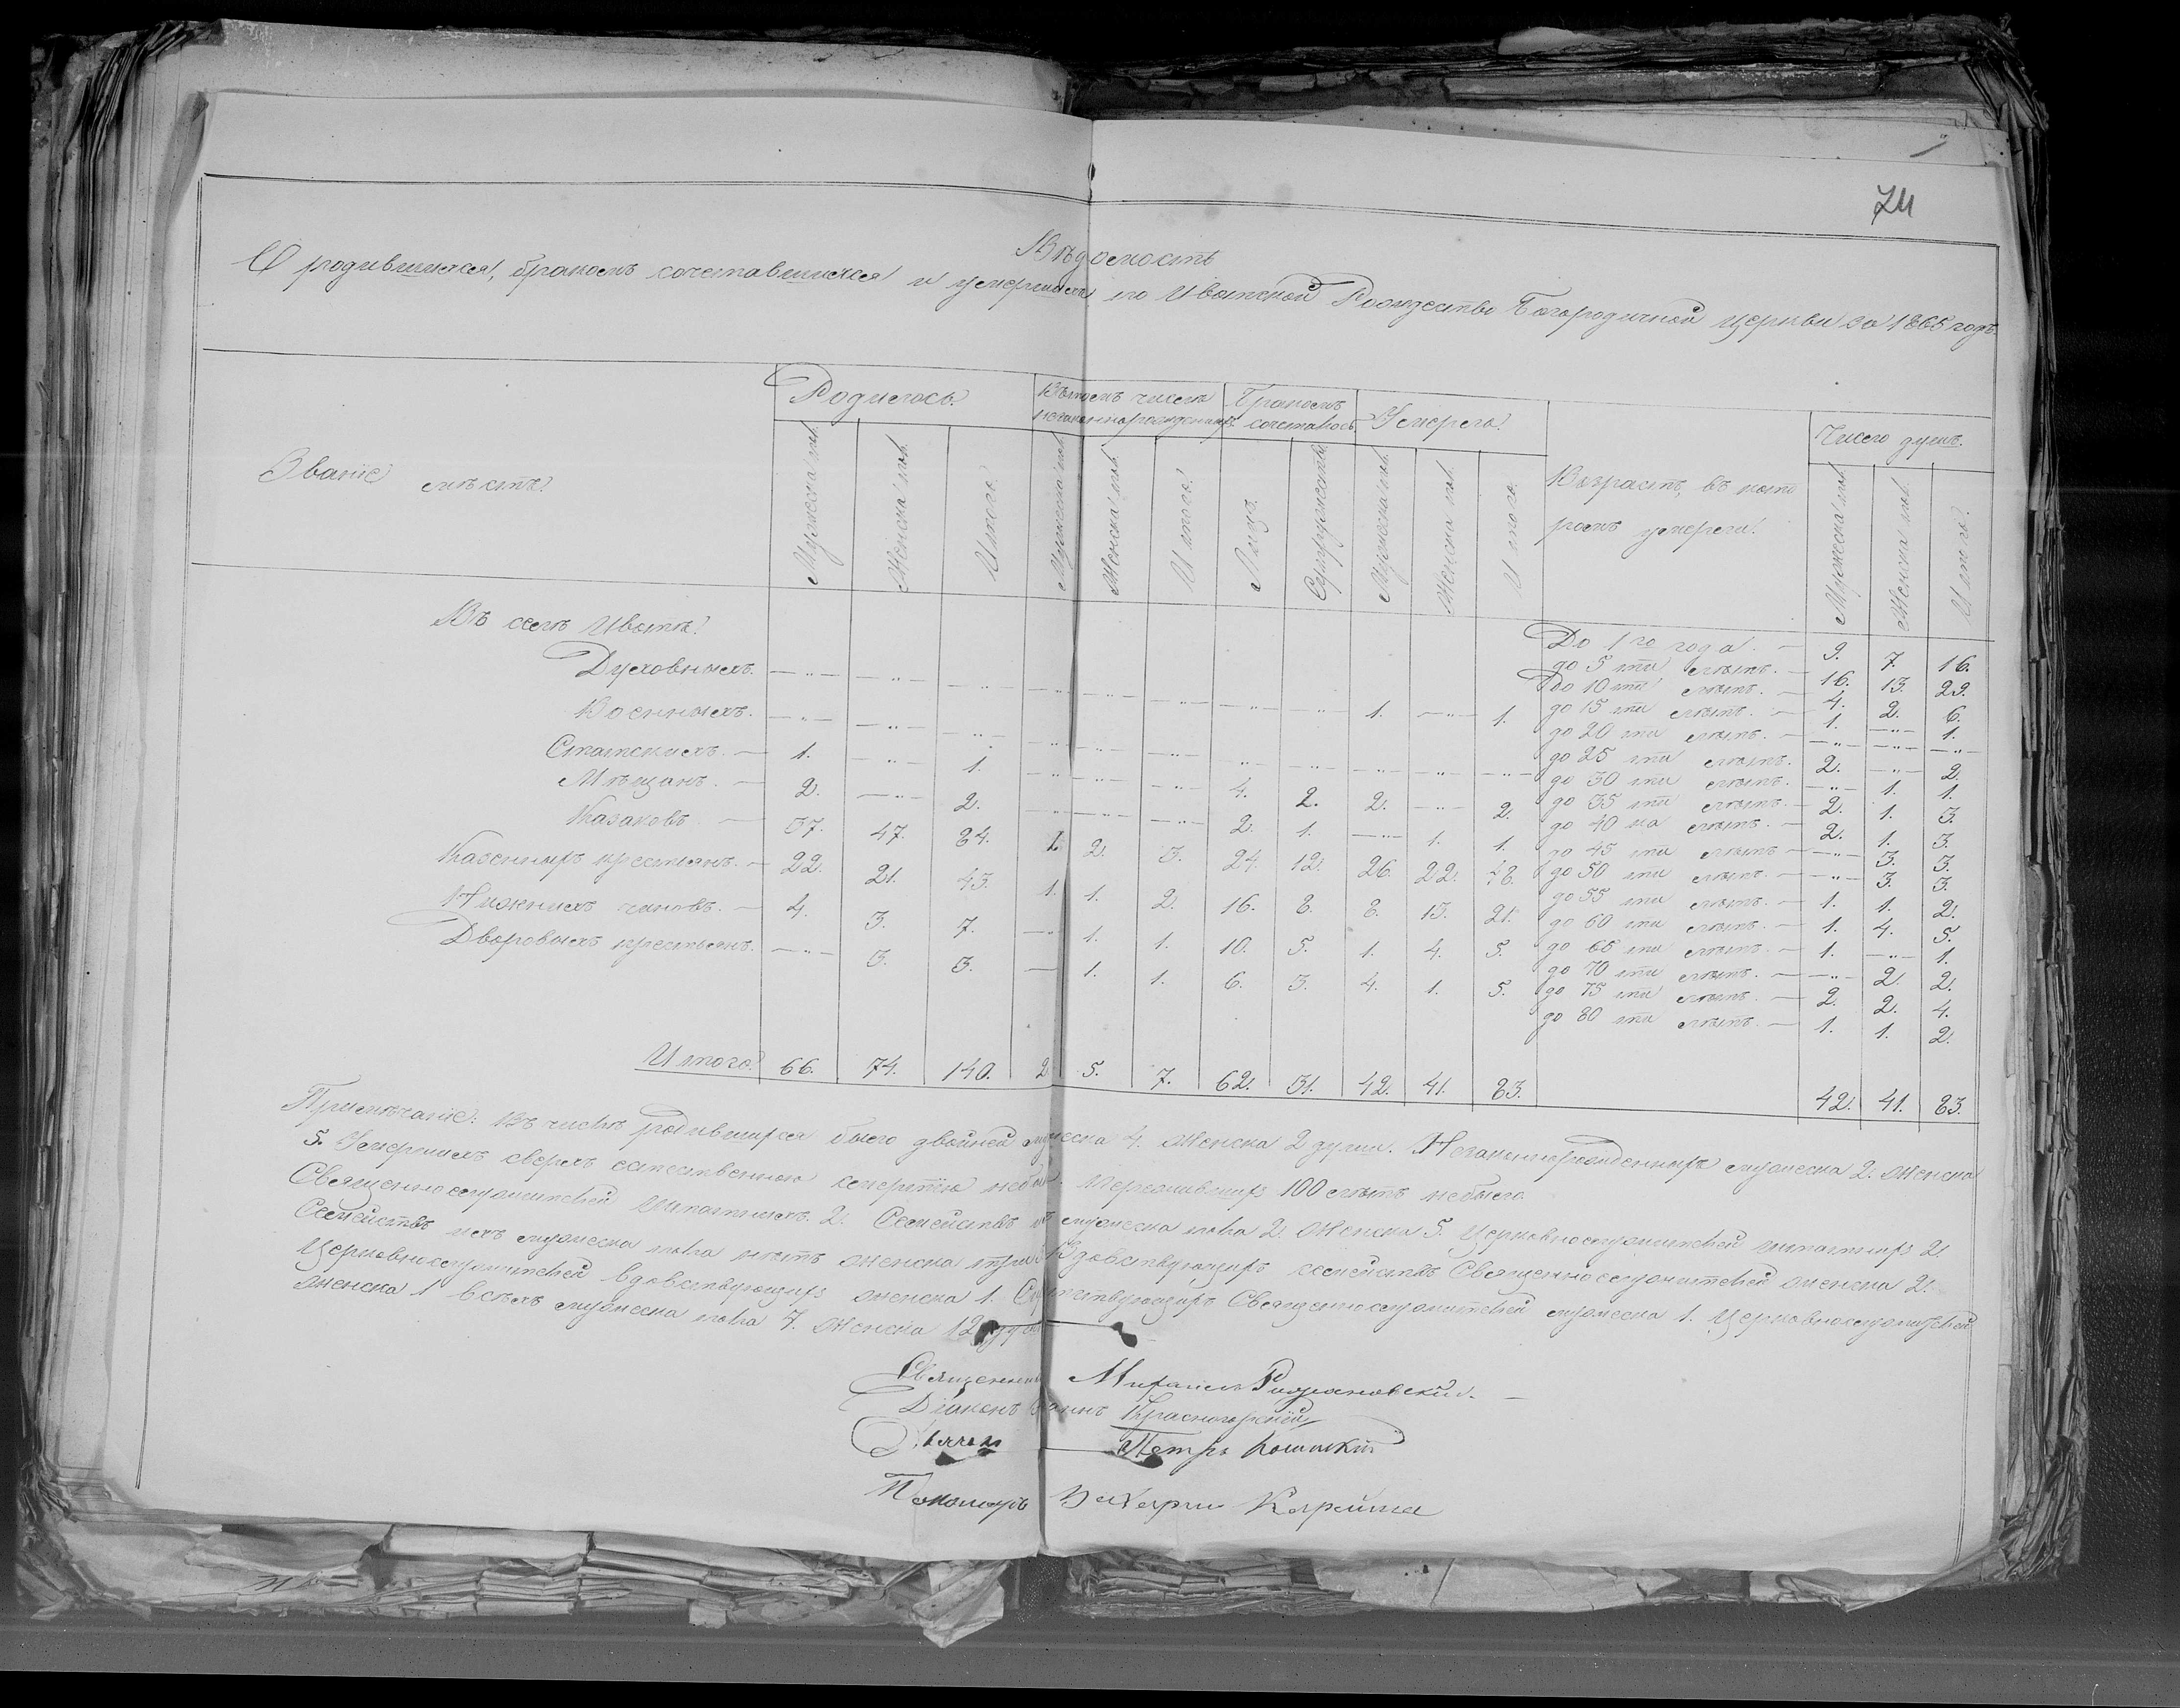 74
Вѣдомость
О родившихся, бракомъ сочетавшихся и умершихъ по Ивотской Рождество Богородичной церкви за 1865 годъ.
Званіе мѣстъ.
Родилось.
Въ томъ числѣ незаконнорожденныхъ
Бракомъ сочеталось
Умерло.
Возрастъ, въ которомъ умерли.
Число душъ.
Мужеска пол. Женска пол. Итого. Мужеска пол. Женска пол. Итого. Лицъ. Супружествъ. Мужеска пол. Женска пол. Итого. Мужеска пол. Женска пол. Итого.
Въ селѣ Ивотѣ.
Духовныхъ. — „ — — „ — — „ — — „ — — „ — — „ — — „ — — „ — 1. — „ — 1.
Военныхъ. — „ — — „ — — „ — — „ — — „ — — „ — — „ — — „ — — „ — — „ — — „ —
Статскихъ. — 1. — „ — 1. — „ — — „ — — „ — 4. 2. 2. — „ — 2.
Мѣщанъ. — 2. — „ — 2. — „ — — „ — — „ — 2. 1. — „ — 1. 1.
Казаковъ — 37. 47. 84. 1. 2. 3. 24. 12. 26. 22. 48.
Казенныхъ крестьянъ. — 22. 21. 43. 1. 1. 2. 16. 8. 8. 13. 21.
Нижнихъ чиновъ. — 4. 3. 7. — „ — 1. 1. 10. 5. 1. 4. 5.
Дворовыхъ крестьянъ. — „ — 3. 3. — 1. 1. 6. 3. 4. 1. 5.
До 1го года. — 9. 7. 16.
до 5ти лѣтъ. — 16. 13. 29.
До 10ти лѣтъ. — 4. 2. 6.
до 15ти лѣтъ. — 1. — „ — 1.
до 20ти лѣтъ. — „ — — „ — — „ —
до 25ти лѣтъ. 2. — „ — 2.
до 30ти лѣтъ. — „ — 1. 1.
до 35ти лѣтъ. — 2. 1. 3.
до 40ка лѣтъ. — 2. 1. 3.
до 45ти лѣтъ — „ — 3. 3.
до 50ти лѣтъ. — „ — 3. 3.
до 55ти лѣтъ. — 1. 1. 2.
до 60ти лѣтъ. — 1. 4. 5.
до 65ти лѣтъ. — 1. — „ — 1.
до 70ти лѣтъ. — „ — 2. 2.
до 75ти лѣтъ. — 2. 2. 4.
до 80ти лѣтъ. — 1. 1. 2.
Итого. 66. 74. 140. 2. 5. 7. 62. 31. 42. 41. 83. 42. 41. 83.
Примѣчаніе: Въ числѣ родившихся было двойней мужеска 4. женска 2 души. Незаконнорожденныхъ мужеска 2. женска
5. Умершихъ сверхъ естественною смертію небыло. Пережившихъ 100 лѣтъ небыло.
Священнослужителей штатныхъ. 2. Семействъ ихъ мужеска пола 2. женска 5. Церковнослужителей штатныхъ 2.
Семействъ ихъ мужеска пола нѣтъ женска три. Вдовствующихъ семействъ Священнослужителей женска 2.
Церковнослужителей вдовствующихъ женска 1. Священнослужителей мужеска 1. Церковнослужителей
женска 1 всѣхъ мужеска пола 7. женска 12 душъ
Священникъ Михаилъ
Діаконъ Іоаннъ Красногорскій
Дьячокъ Петръ
Пономарь Захарій